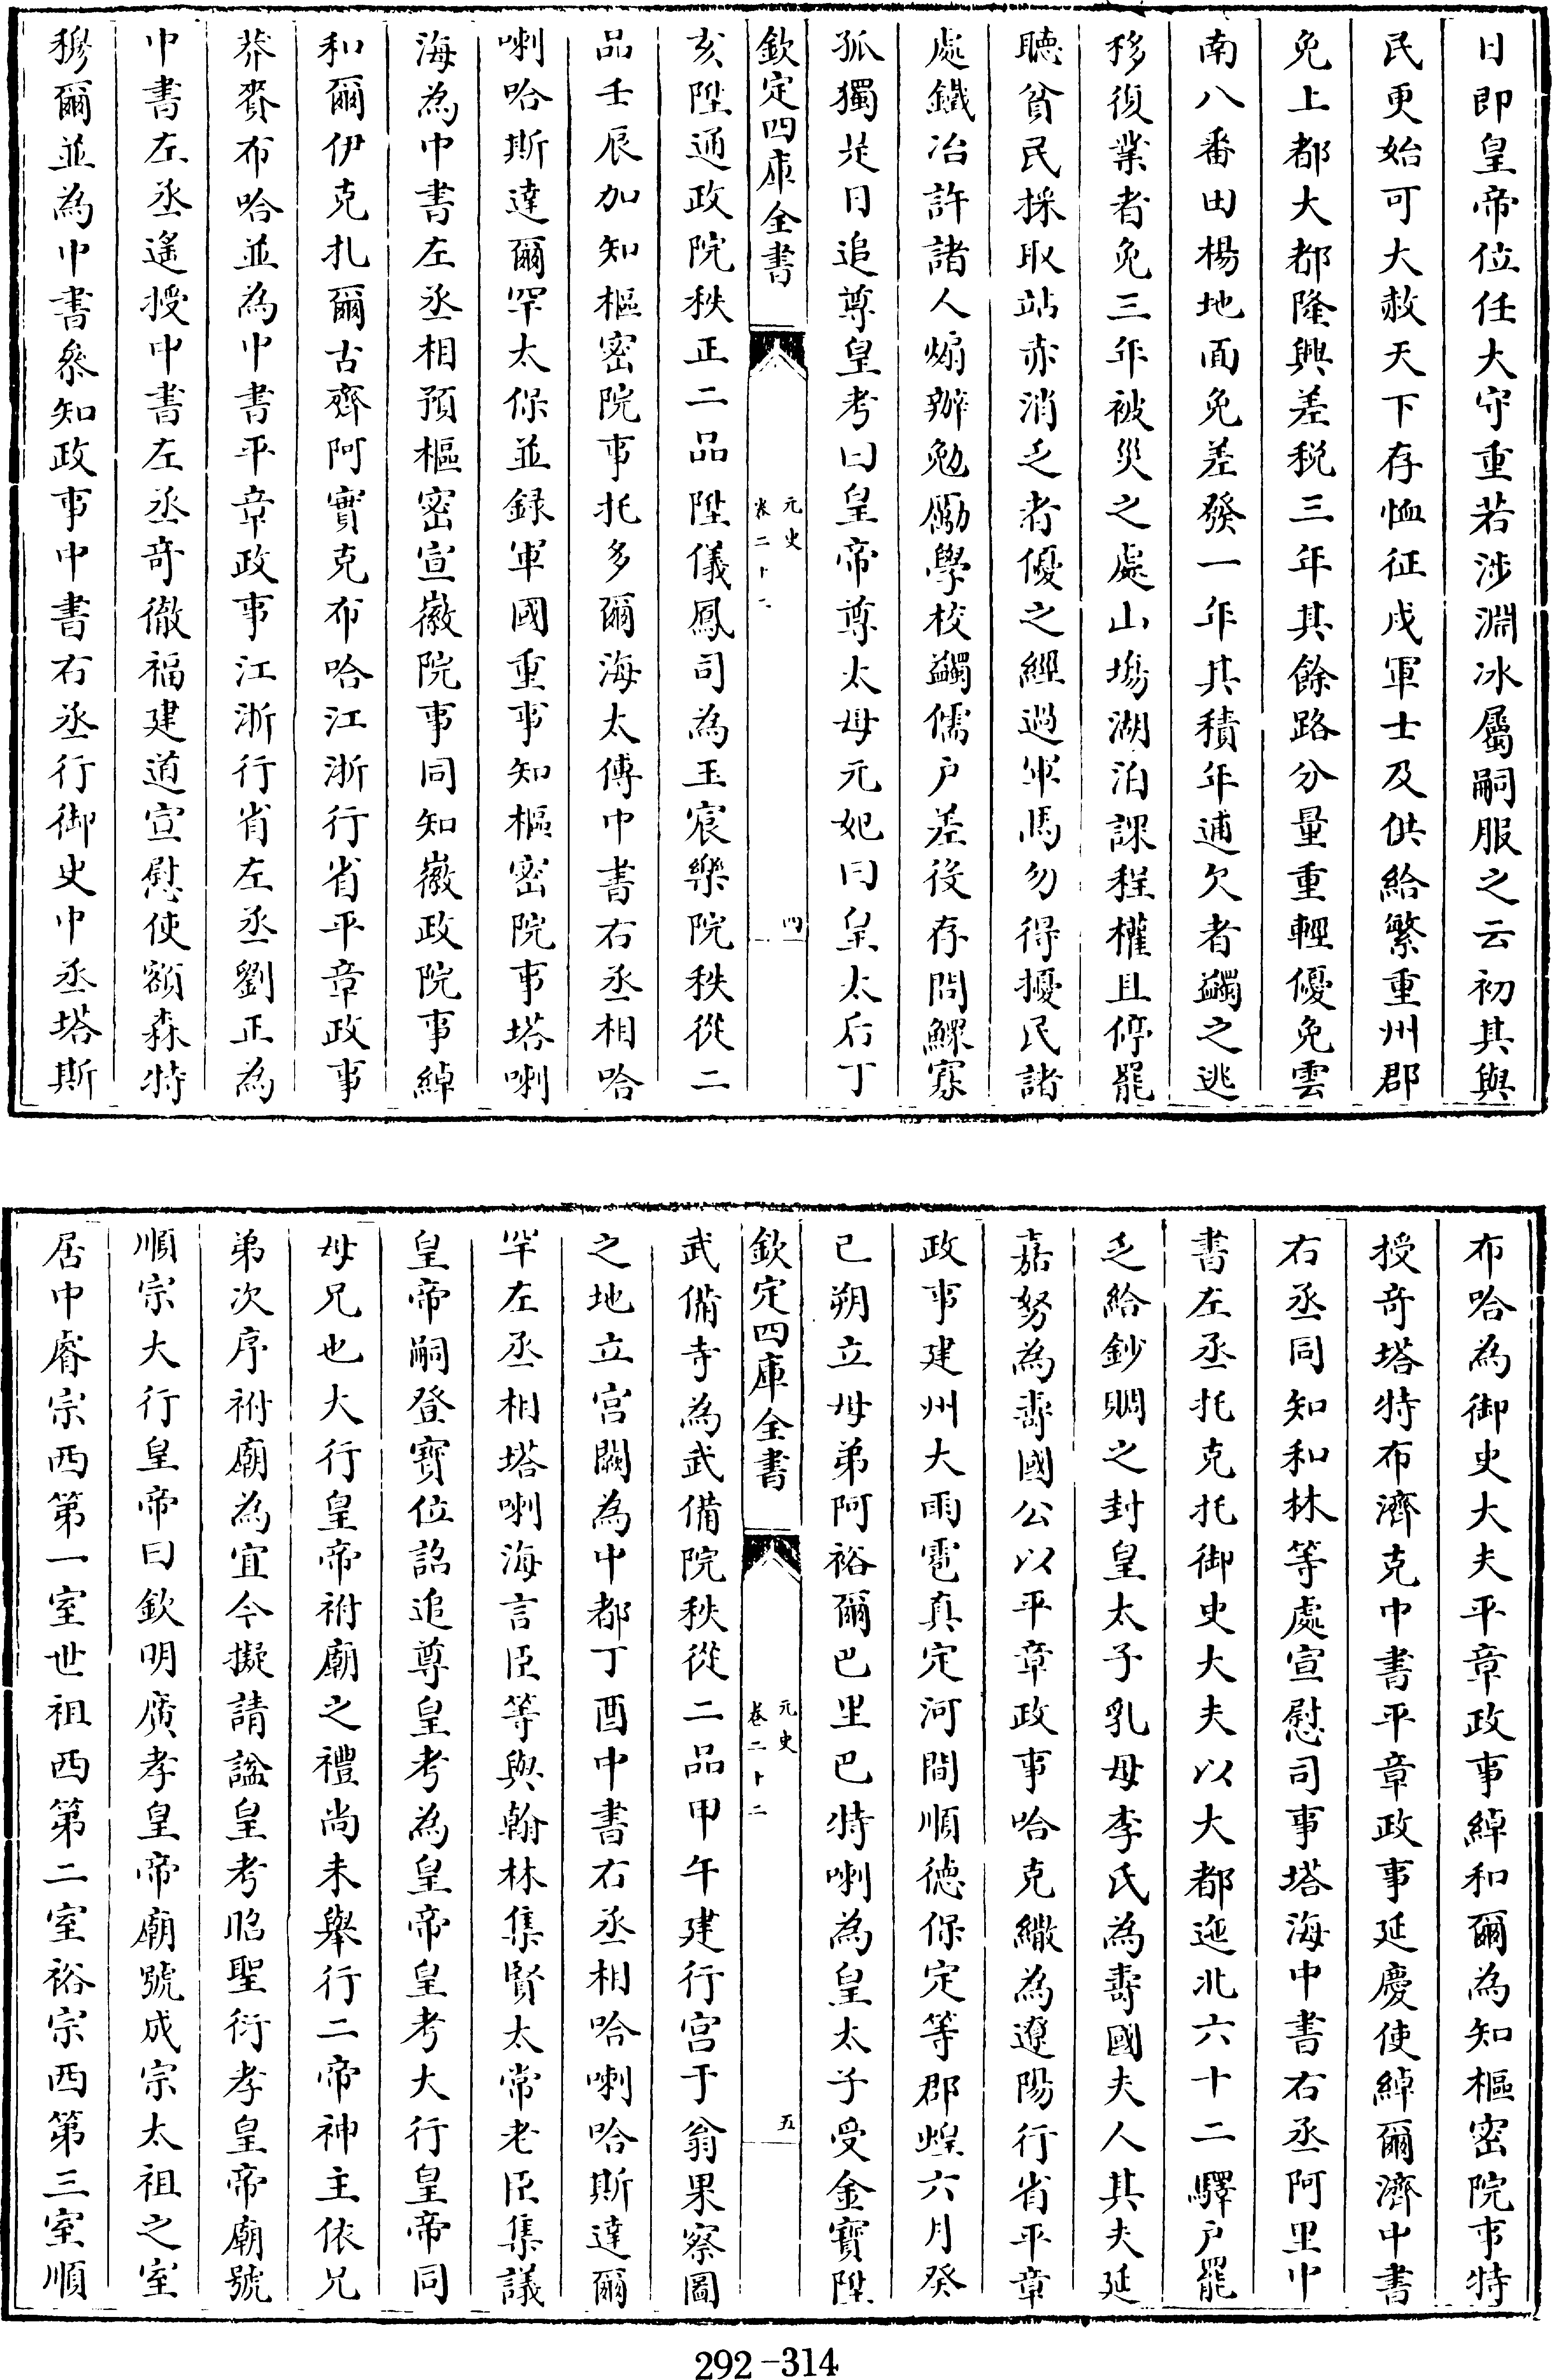 日即皇帝位任大守重若涉淵冰屬嗣服之云初其與
民更始可大赦天下存恤征戍軍士及供給繁重州郡
免上都大都隆興差税三年其餘路分量重輕優免雲
南八番田楊地面免差發一年其積年逋欠者蠲之逃
移復業者免三年被災之處山塲湖泊課程權且停罷
聽貧民採取站赤消乏者優之經過軍馬勿得擾民諸
處鐵冶許諸人煽辦勉勵學校蠲儒户差役存問鰥寡
孤獨是日追尊皇考曰皇帝尊太母元妃曰皇太后丁
欽定四庫全書
元史
卷二十二
四
亥陞通政院秩正二品陞儀鳳司為玉宸樂院秩從二
品壬辰加知樞密院事托多爾海太傅中書右丞相哈
喇哈斯達爾罕太保並録軍國重事知樞密院事塔喇
海為中書左丞相預樞密宣徽院事同知徽政院事綽
和爾伊克扎爾古齊阿實克布哈江浙行省平章政事
莽賚布哈並為中書平章政事江浙行省左丞劉正為
中書左丞遙授中書左丞竒徹福建道宣慰使額森特
穆爾並為中書參知政事中書右丞行御史中丞塔斯
布哈為御史大夫平章政事綽和爾為知樞密院事特
授竒塔特布濟克中書平章政事延慶使綽爾濟中書
右丞同知和林等處宣慰司事塔海中書右丞阿里中
書左丞托克托御史大夫以大都迤北六十二驛户罷
乏給鈔賙之封皇太子乳母李氏為壽國夫人其夫延
嘉努為壽國公以平章政事哈克繖為遼陽行省平章
政事建州大雨雹真定河間順德保定等郡蝗六月癸
巳朔立母弟阿裕爾巴里巴特喇為皇太子受金寶陞
欽定四庫全書
元史
卷二十二
五
武備寺為武備院秩從二品甲午建行宫于翁果察圖
之地立宫闕為中都丁酉中書右丞相哈喇哈斯達爾
罕左丞相塔喇海言臣等與翰林集賢太常老臣集議
皇帝嗣登寶位詔追尊皇考為皇帝皇考大行皇帝同
母兄也大行皇帝祔廟之禮尚未舉行二帝神主依兄
弟次序祔廟為宜今擬請諡皇考昭聖衍孝皇帝廟號
順宗大行皇帝曰欽明廣孝皇帝廟號成宗太祖之室
居中睿宗西第一室世祖西第二室裕宗西第三室順
292-314